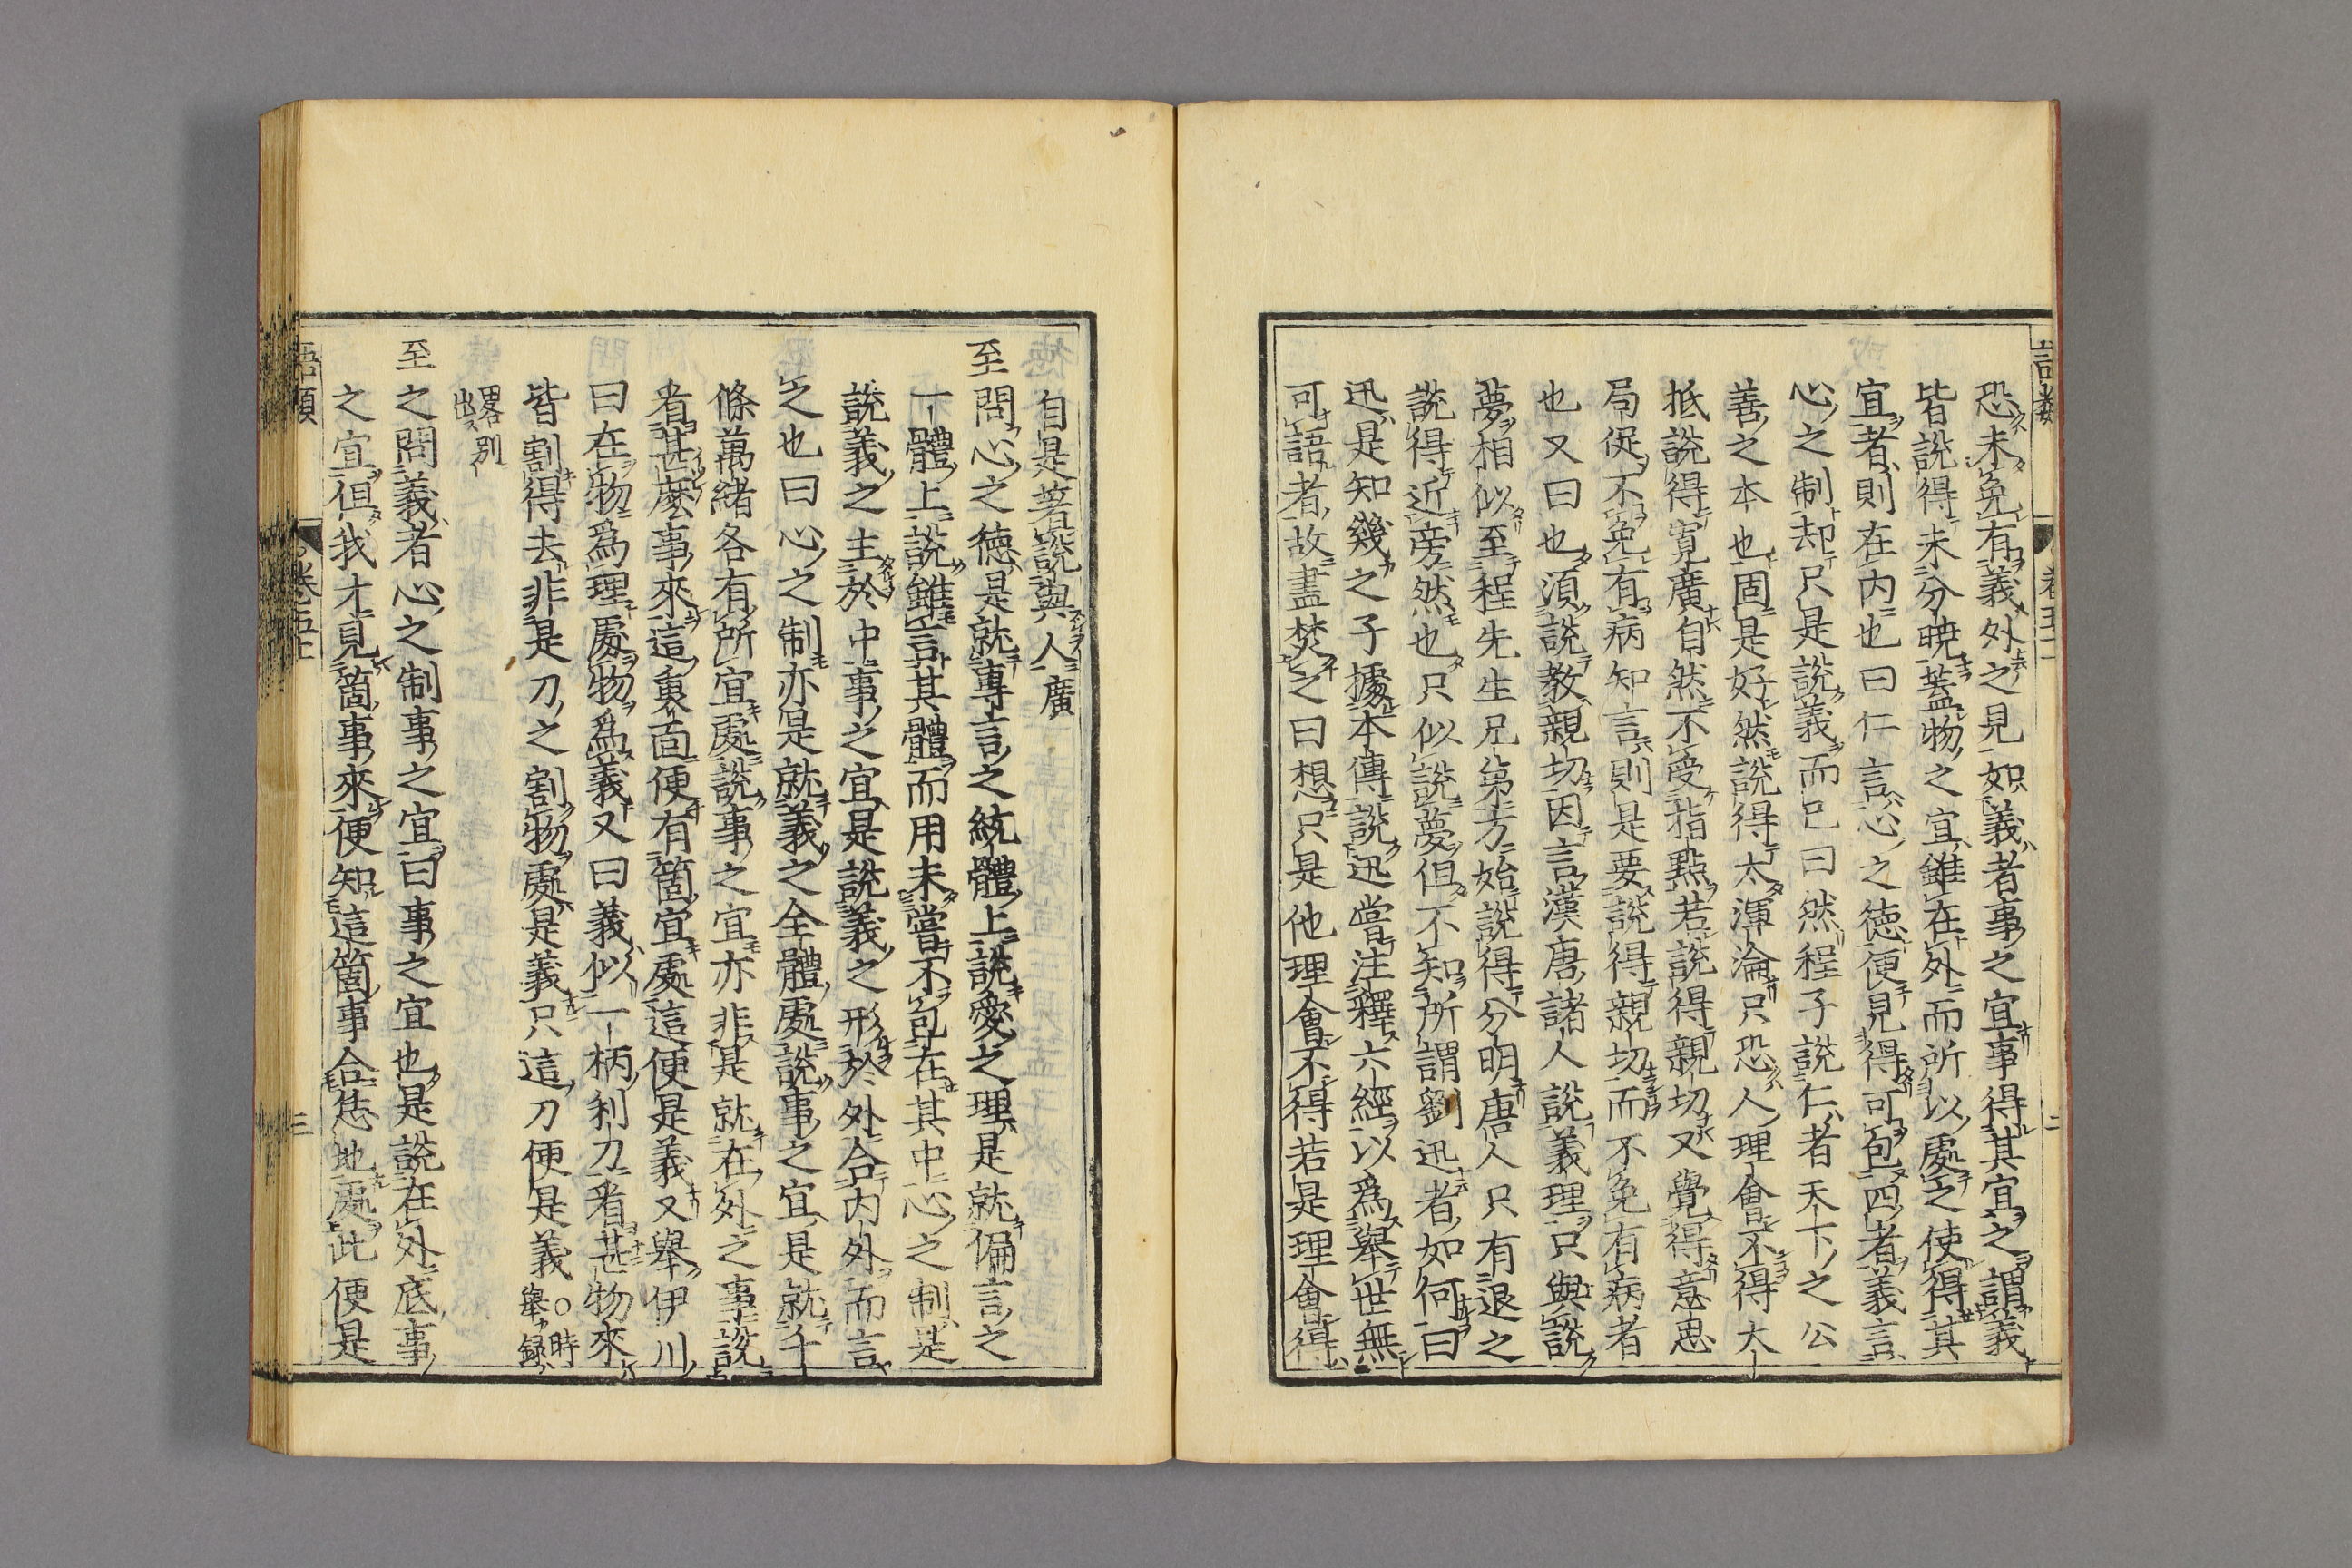 語類
卷五十一
二
恐未免有義外之見如義者事之宜事得其宜之謂義
皆說得未分曉蓋物之宜雖在外而所以處之使得其
宜者則在内也曰仁言心之德便見得可包四者義言
心之制却只是說義而已曰然程子說仁者天下之公
善之本也固是好然說得太渾淪只恐人理會不得大
抵說得寛廣自然不受指點若說得親切又覺得意思
局促不免有病知言則是要說得親切而不免有病者
也又曰也須說教親切因言漢唐諸人說義理只與說
夢相似至程先生兄第方始說得分明唐人只有退之
說得近旁然也只似說夢但不知所謂劉迅者如何曰
迅是知幾之子據本傳說迅嘗注釋六經以爲舉世無
可語者故盡焚之曰想只是他理會不得若是理會得
自是著說與人廣
至問心之德是就專言之統體上說愛之理是就偏言之
一體上說雖言其體而用未嘗不包在其中心之制是
說義之主於中事之宜是說義之形於外合内外而言
之也曰心之制亦是就義之全體處說事之宜是就千
條萬緒各有所宜處說事之宜亦非是就在外之事說
看甚麼事來這裏面便有箇宜處這便是義又舉伊川
曰在物爲理處物爲義又曰義似一柄利刀看甚物來
皆割得去非是刀之割物處是義只這刀便是義○時舉錄
畧別出
至之問義者心之制事之宜曰事之宜也是說在外底事
之宜但我才見箇事來便知這箇事合恁地處此便是
語類
卷五十一
三